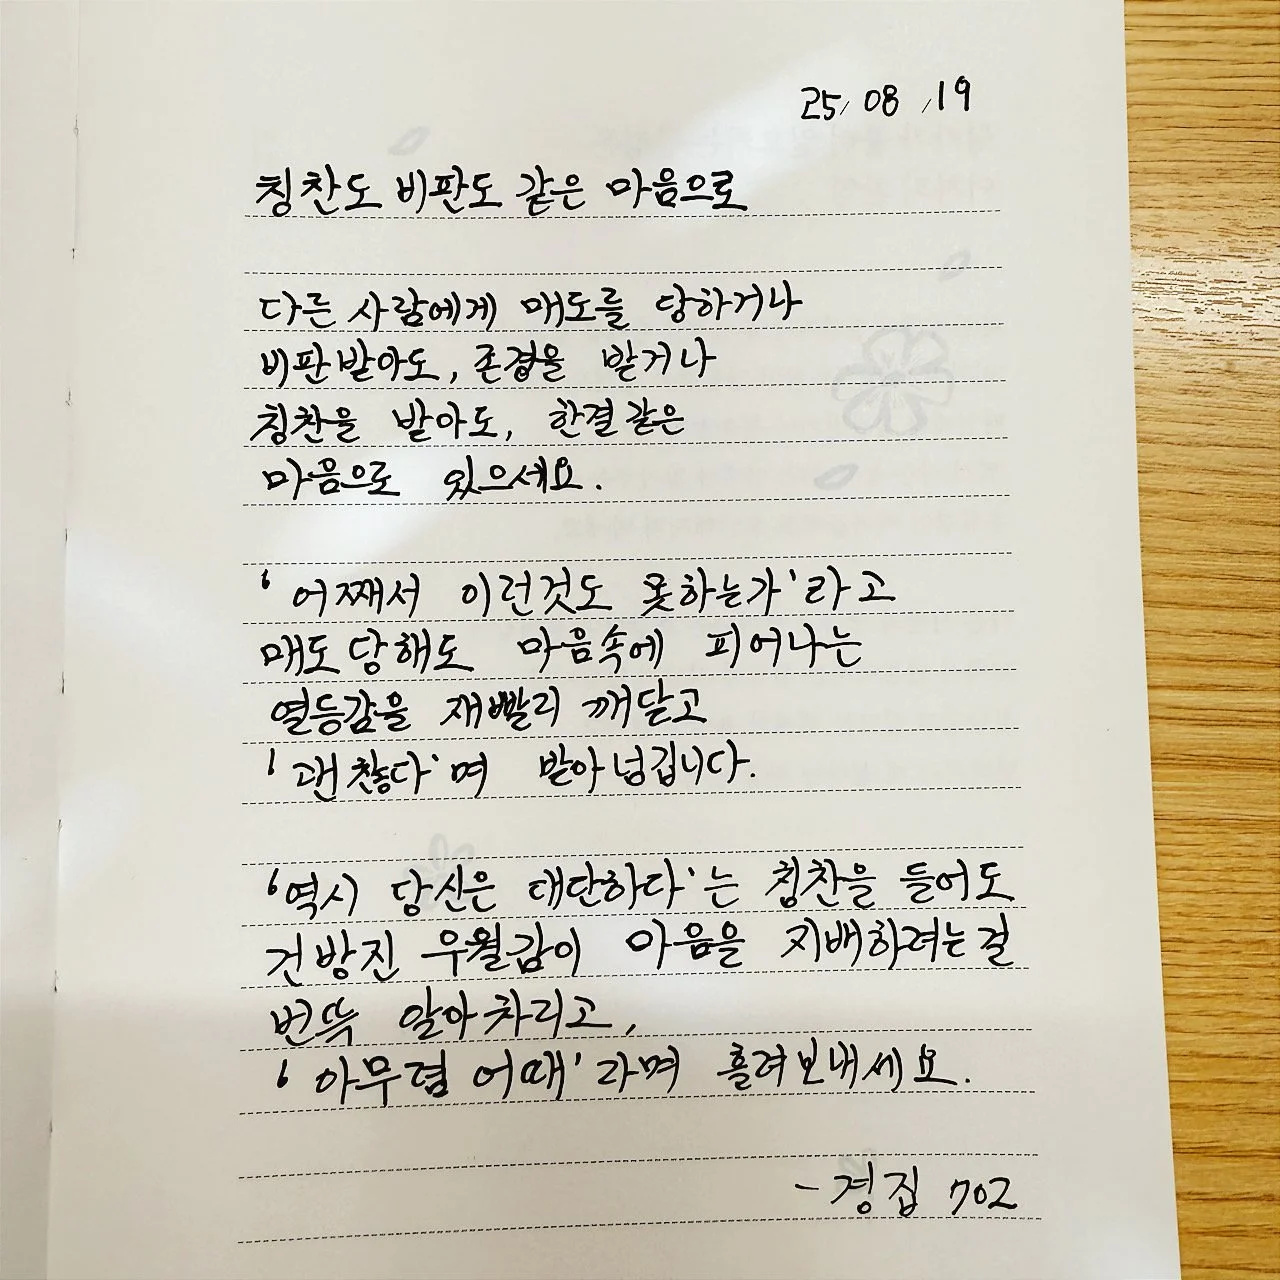 25, 08, 19
칭찬도 비판도 같은 마음으로
다른 사람에게 매도를 당하거나
비판받아도, 존경을 받거나
칭찬을 받아도, 한결같은
마음으로 있으세요.
'어째서 이런것도 못하는가'라고
매도당해도 마음속에 피어나는
열등감을 재빨리 깨닫고
'괜찮다'며 받아넘깁니다.
'역시 당신은 대단하다'는 칭찬을 들어도
건방진 우월감이 마음을 지배하려는걸
번뜩 알아차리고,
'아무렴 어때'라며 흘려보내세요.
- 경집 702